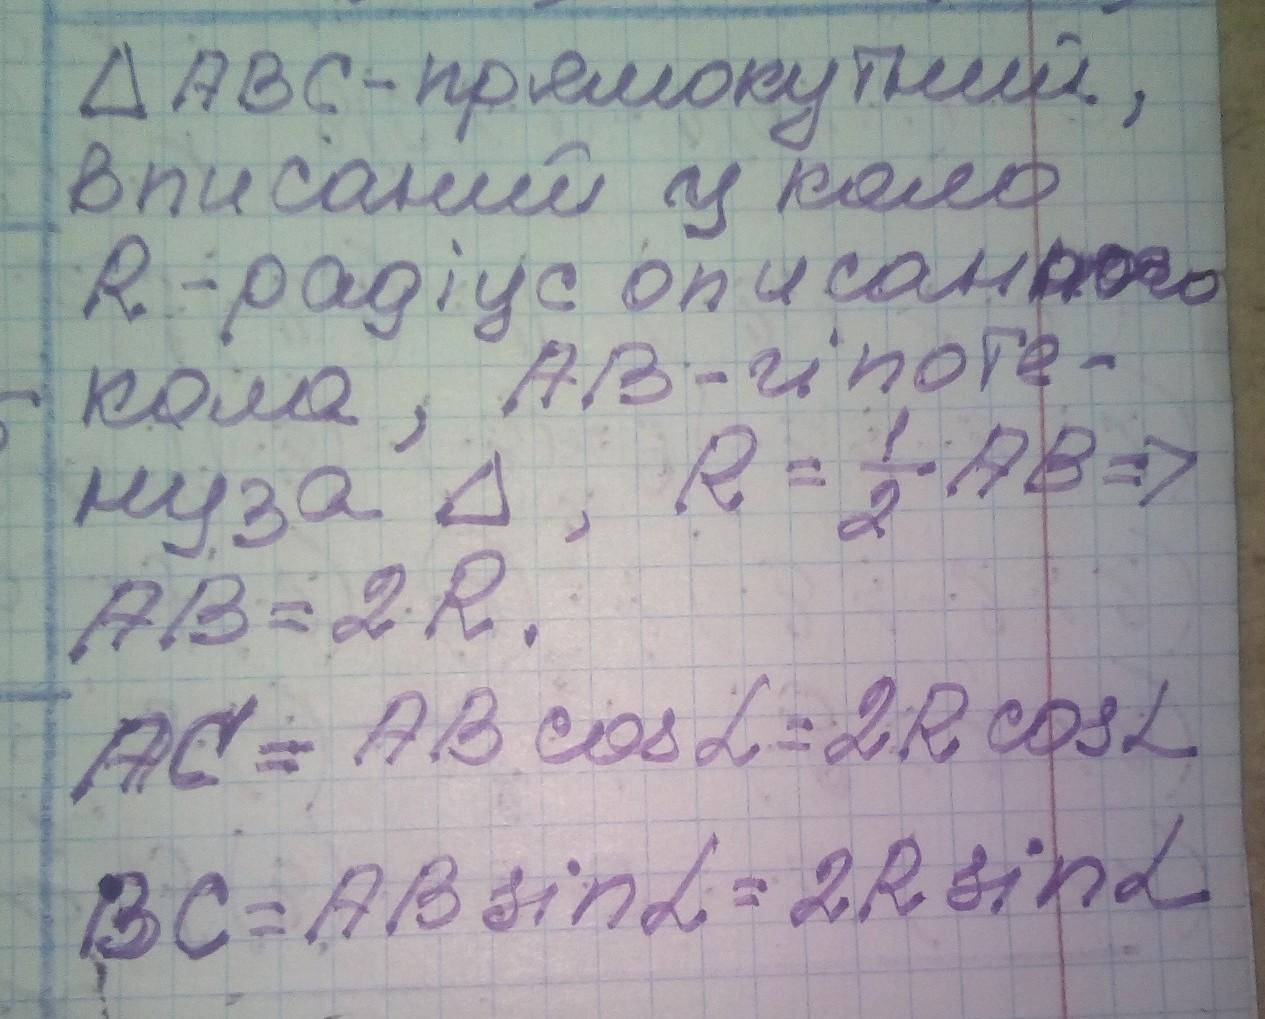 △ABC-прямокутний,
вписаний у коло
R-радіус описаного
кола, AB-гіпоте-
нуза △, R = 1/2 · AB =>
AB = 2R.
AC = AB cos α = 2R cos α
BC = AB sin α = 2R sin α